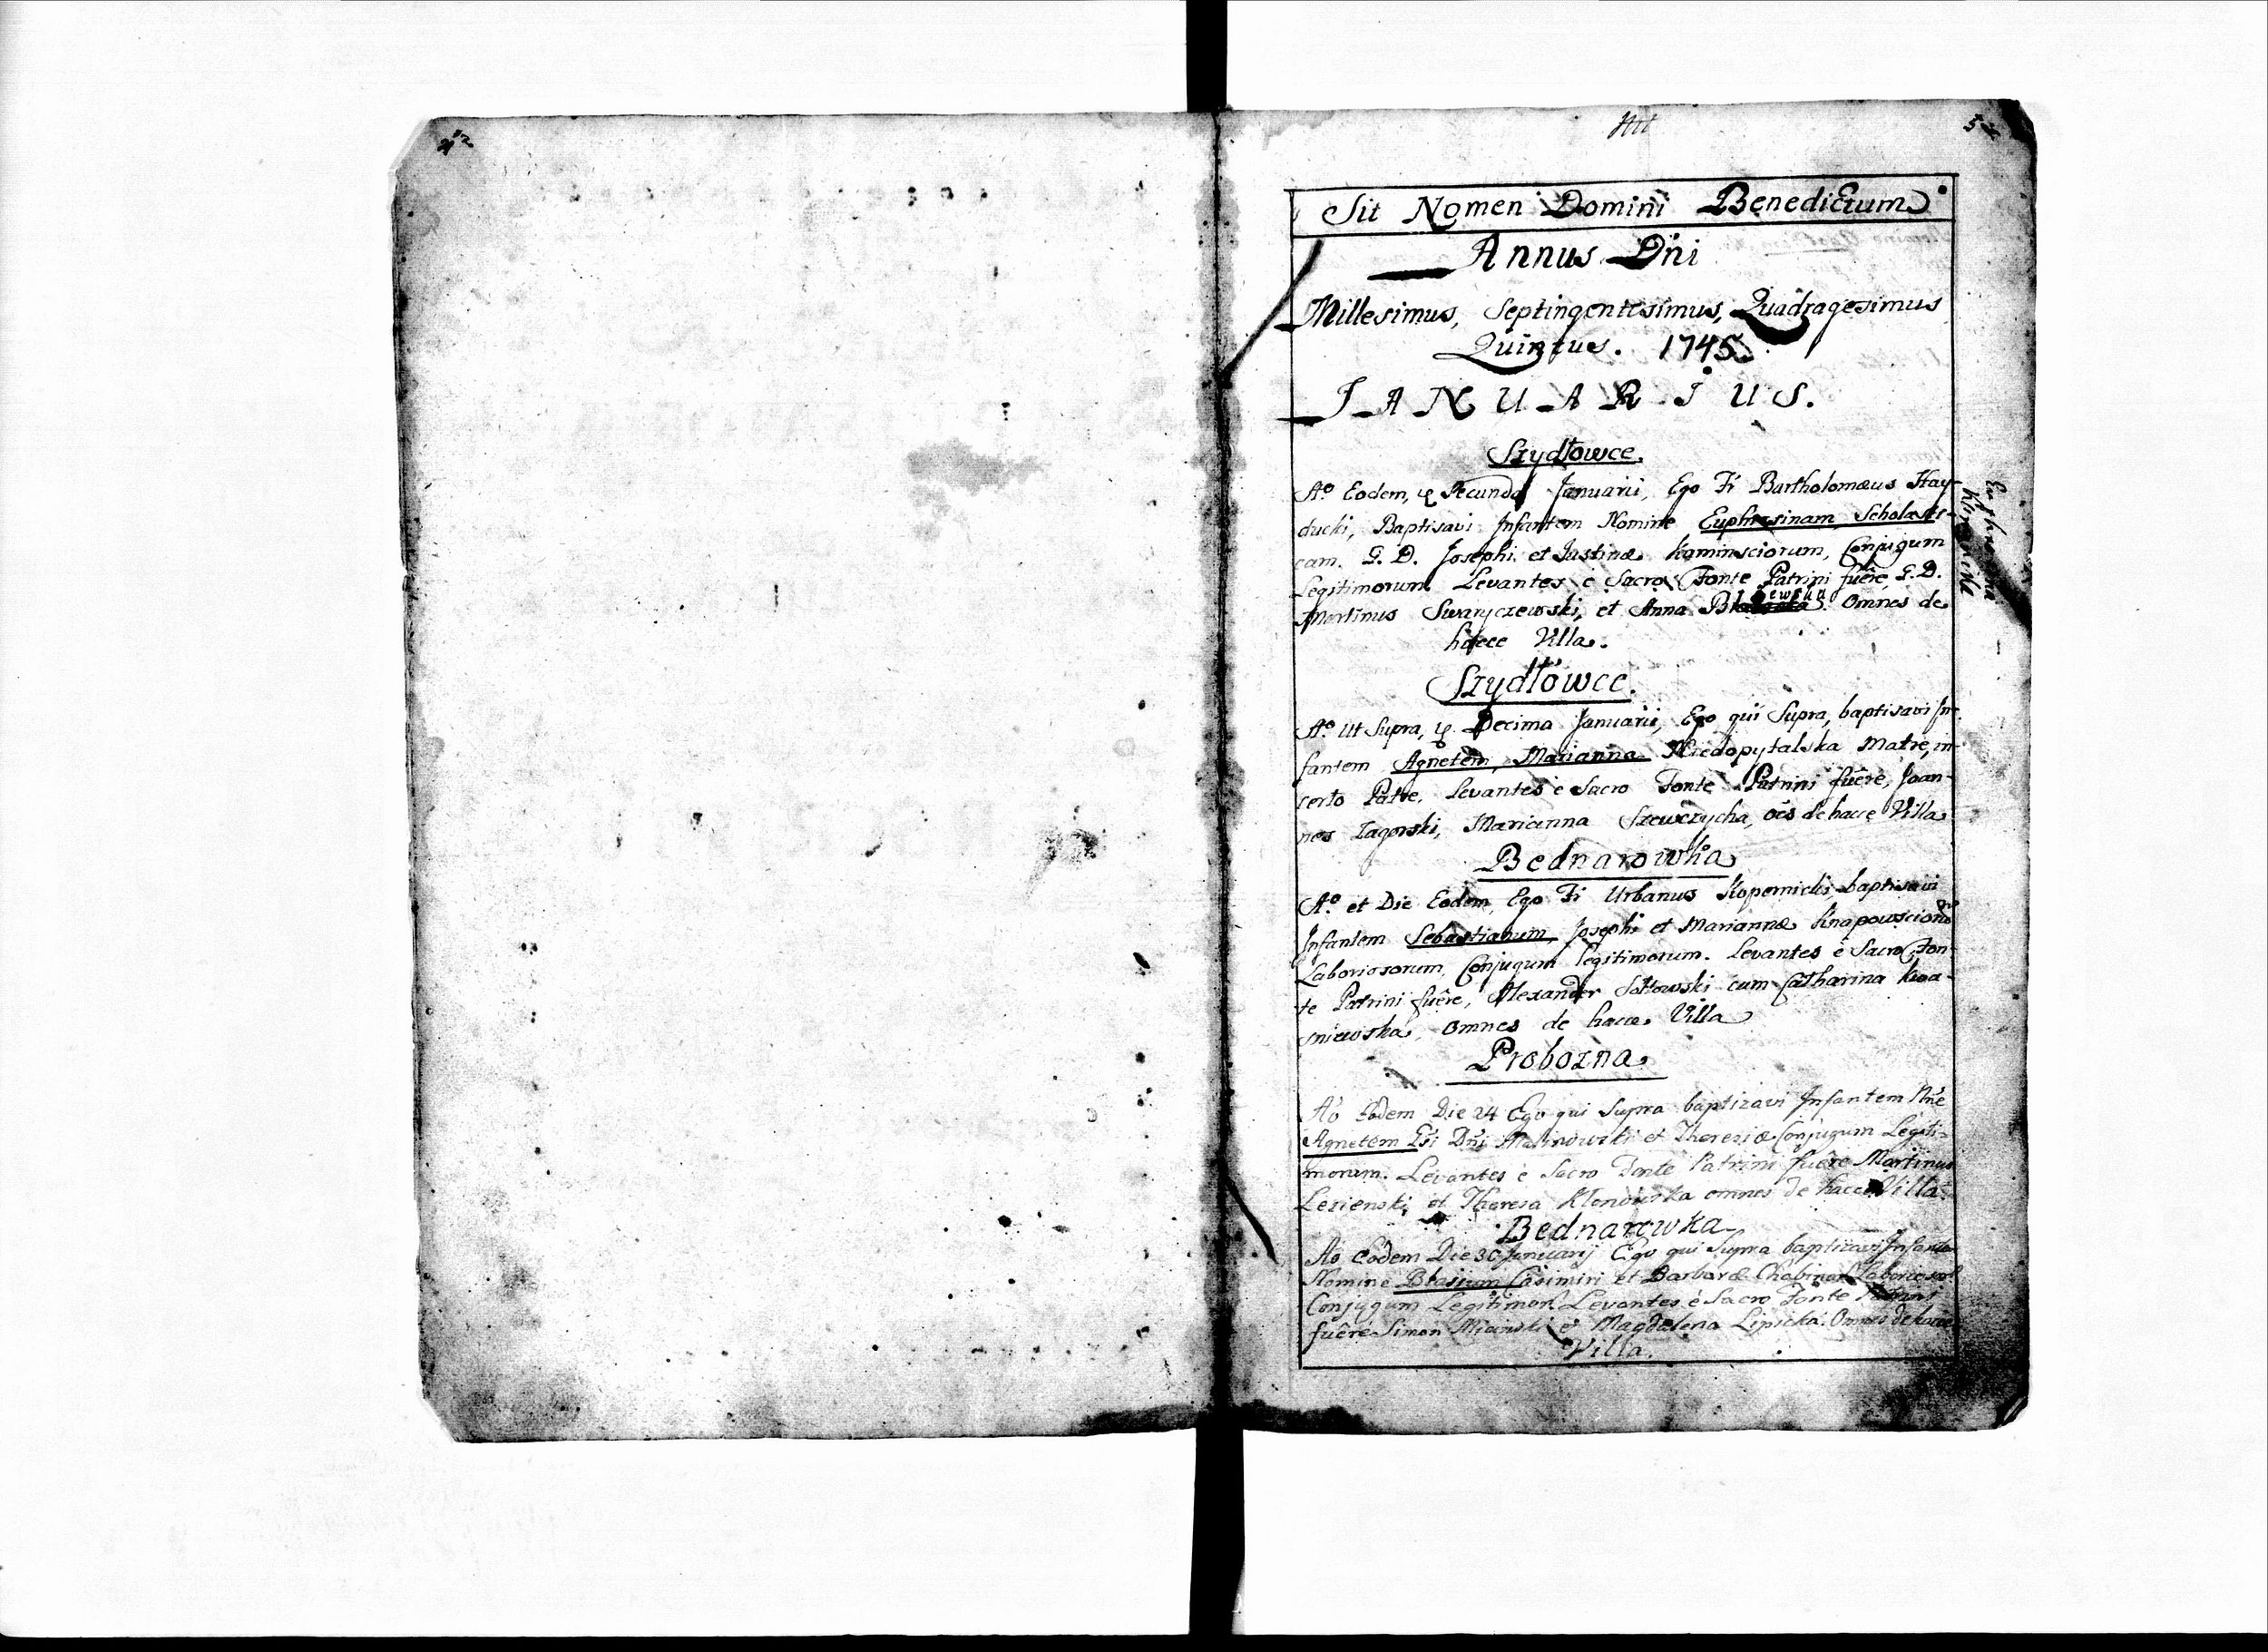 Sit Nomen Domini Benedictum
Annus Dñi
Millesimus, Septingentesimus, Quadragesimus
Quintus. 1745
JANUARIUS.
Szydłowce.
Aº Eodem, Secunda Januarii, Ego Fr Bartholomæus Hay-
ducki, Baptisavi Infantem Nomine Euphrosinam, Scholasti-
cam. G. D. Josephi et Justinæ Kaminsciorum, Conjugum
Legitimorum Levantes è Sacro Fonte Patrini fuêre, G. D.
Martinus Swaryczewski, et Anna Omnes de
hacce Villa.
Szydłowce.
Aº Ut Supra, Decima Januarii, Ego qui Supra, baptisavi In-
fantem Agnetem, Marianna Niedopytalska Matre, in-
certo Patre. Levantes è Sacro Fonte Patrini fuêre, Joan-
nes Zagorski, Marianna Szewczycha, oẽs de hacce Villa
Bednarowka
Aº et Die Eodem, Ego Fr Urbanus Kopernicki, baptisavi
Infantem Sebastianum, Josephi et Mariannæ
Laboriosorum, Conjugum legitimorum. Levantes è Sacro Fon-
te Patrini fuêre, Alexander Sottowski cum Catharina Kwa-
sniewska, Omnes de hacce Villa
Probozna
Aº Eodem Die 24 Ego qui Supra baptizavi Infantem Nñe
Agnetem Gsi Dñi Malinowski et Theresiæ Conjugum Legiti-
morum. Levantes è Sacro Fonte Patrini fuêre Martinus
Lezienski et Theresa Klonowska omnes de hacce Villa.
Bednarowka
Aº Eodem Die 30 Januarij Ego qui Supra baptizavi Infantem
Nomine Blasium Casimiri et Barbaræ
Conjugum Legitimor. Levantes è Sacro Fonte Patrini
fuêre Simon et Magdalena Lipicka. Omnes de hacce
Villa.